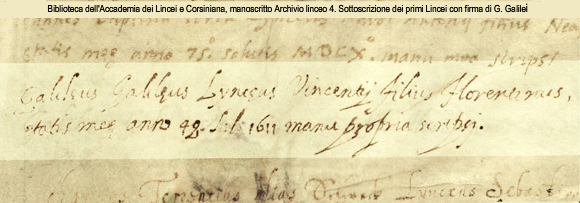 Biblioteca dell'Accademia dei Lincei e Corsiniana, manoscritto Archivio linceo 4. Sottoscrizione dei primi Lincei con firma di G. Galilei
filius Nea
ętatis meę anno 75. salutis MDCX. manu mea scripsi
Galilęus Galilęus Lyncęus Vincentij filius Florentinus,
ętatis meę anno 48. Sal. 1611 manu propria scripsi.
Terentius alias Lynceus